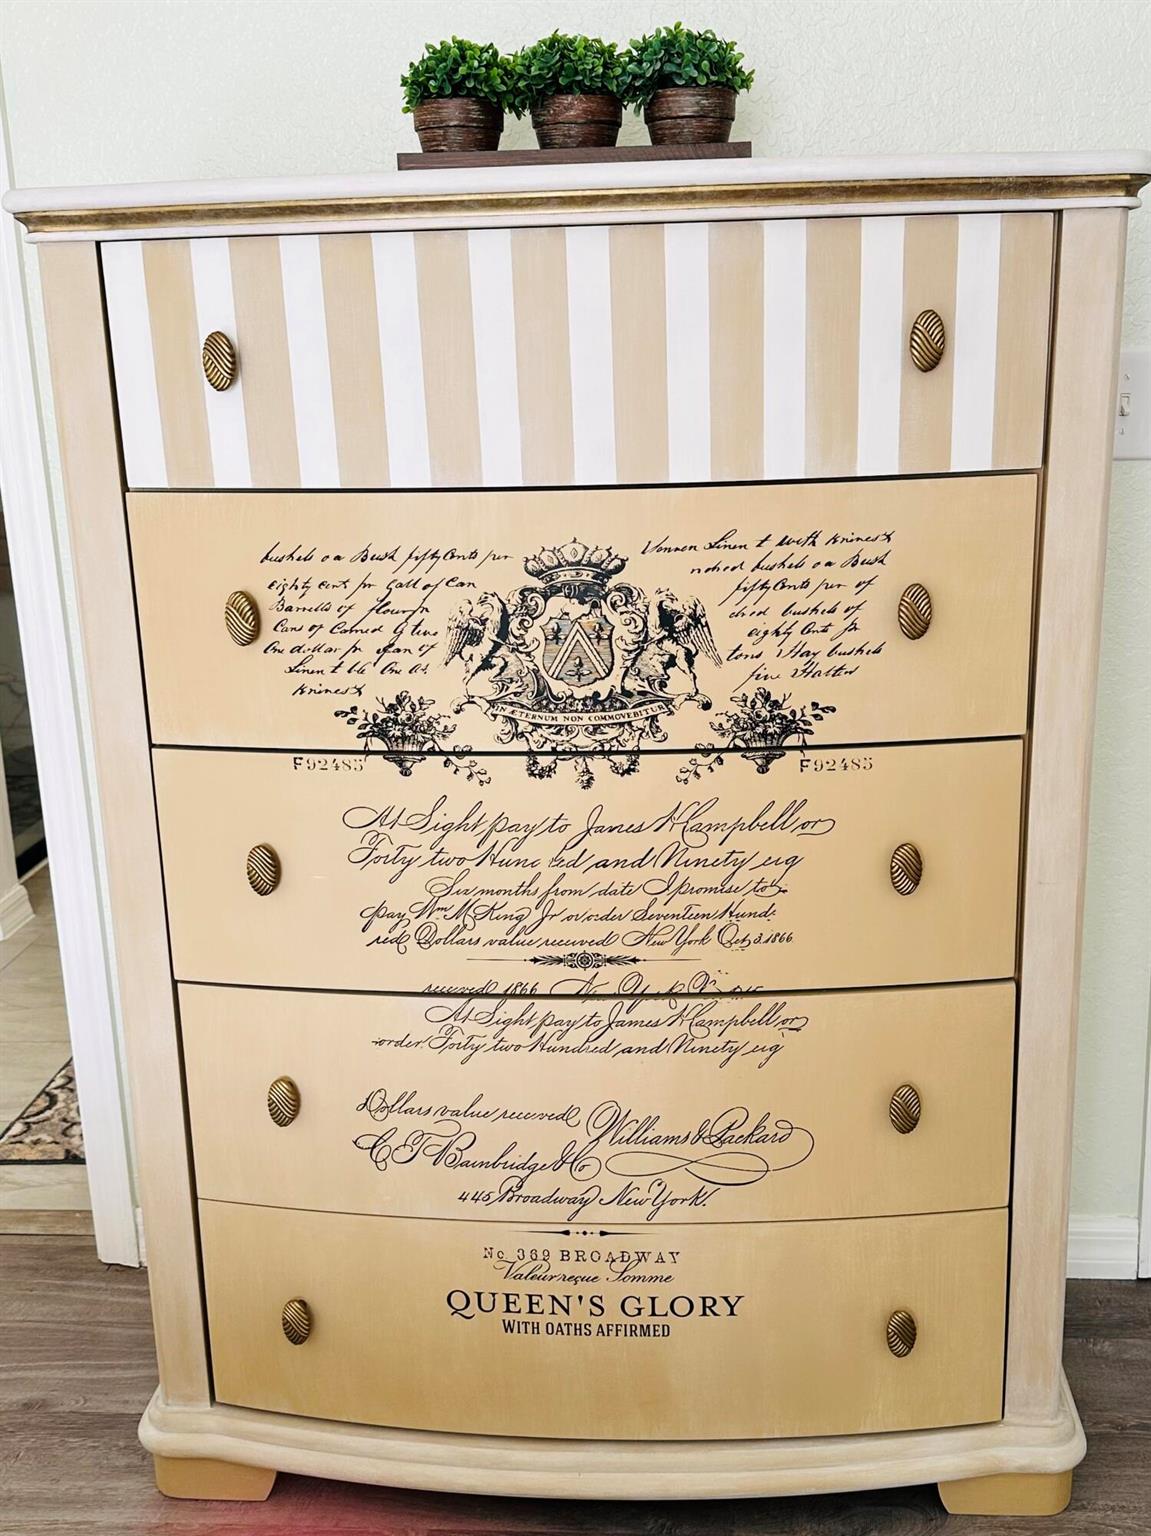 bushels oa Bush fifty Cents per
eighty Cent pr Gall of Can
Barrells of flour pr
Cans of Corned
One dollar pr
Linen t
Kninest
Linen t with Kninest
bushels oa Bush
fifty Cents per of
bushels of
eighty Cents pr
tons Hay bushels
five
IN ÆTERNUM NON COMMOVEBITUR
F92485 F92485
At Sight pay to James H Campbell or
Forty two Hundred and Ninety eig
Six months from date I promise to
pay Wm McKing Jr or order Seventeen Hund-
red Dollars value received New York Oct 3. 1866
received 1866
At Sight pay to James H Campbell or
order Forty two Hundred and Ninety eig
Dollars value received Williams & Packard
C T Bainbridge & Co
445 Broadway New York.
No 369 BROADWAY
Valeur reçue Somme
QUEEN'S GLORY
WITH OATHS AFFIRMED